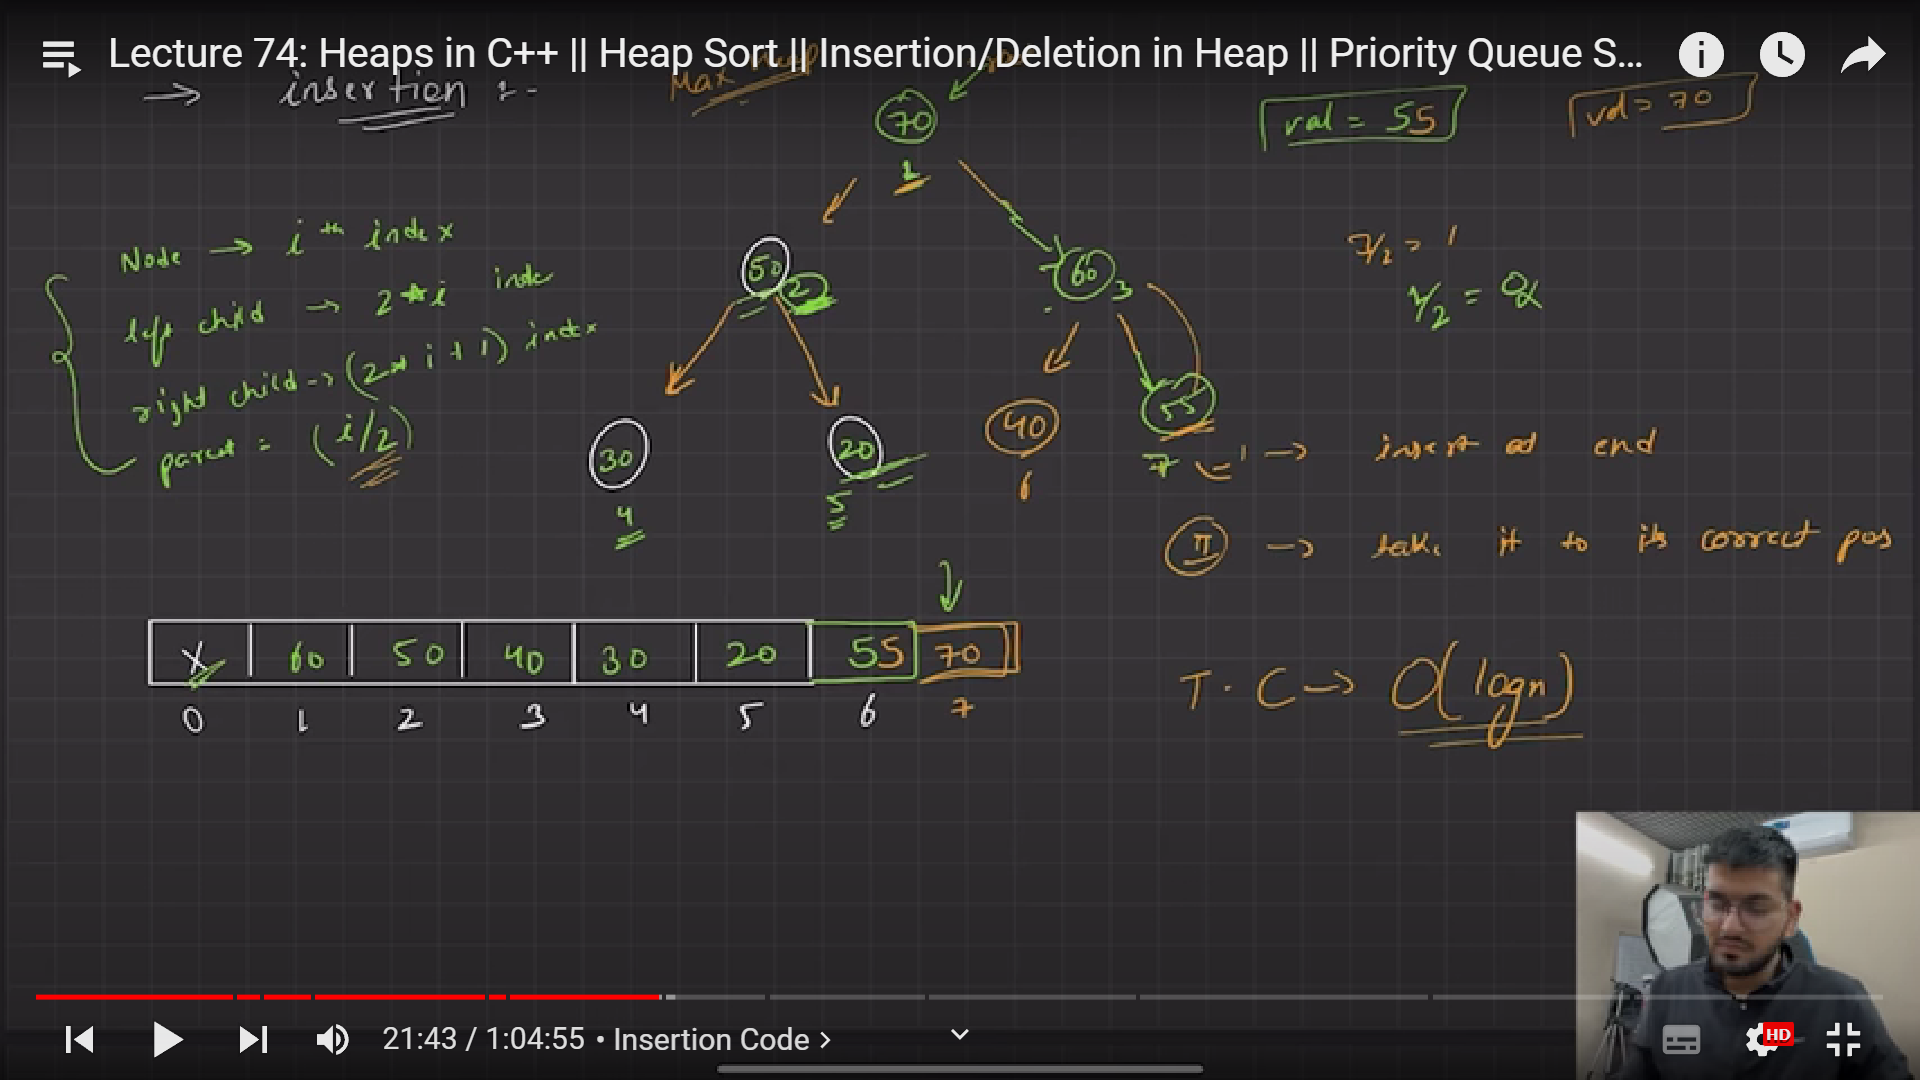 Lecture 74: Heaps in C++ || Heap Sort || Insertion/Deletion in Heap || Priority Queue S...
→ insertion :-
Max heap
val = 55
val = 70
70
1
Node → i th index
left child → 2*i inde
right child → (2* i + 1) index
parent = (i/2)
50
2
60
3
30
4
20
5
40
6
55
7
= 1
= 0
→ insert at end
II → take it to its correct pos
X 60 50 40 30 20 55 70
0 1 2 3 4 5 6 7
T. C → O(logn)
21:43 / 1:04:55 • Insertion Code >
HD